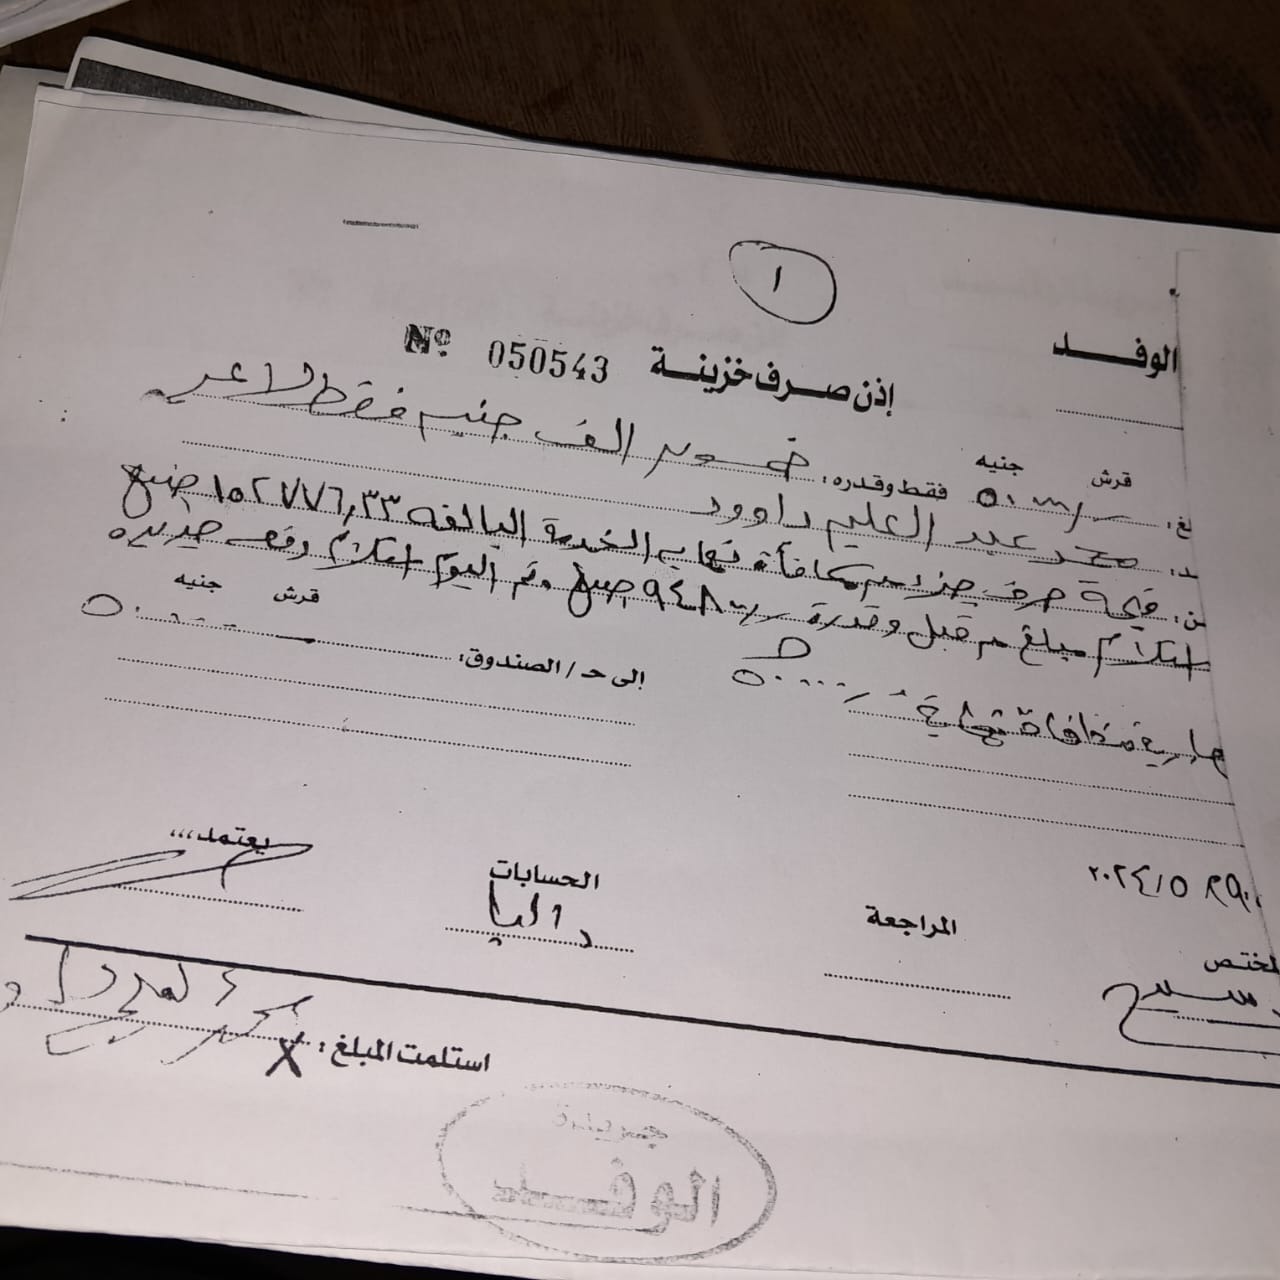 ١
الوفد
إذن صرف خزينة Nº 050543
قرش جنيه
٥٠٠٠٠/ فقط وقدره: خمسون الف جنيه فقط لا غير
محمد عبد العليم داوود
قيمة صرف جزء من مكافأة نهاية الخدمة البالغه ١٥٢٧٧٦,٣٣ جنيه
استلام مبلغ من قبل وقدرة ٩٤٨٠٠ جنيه وتم اليوم استلام دفعه جديده
قرش جنيه
إلى حـ/الصندوق: ٥٠٠٠٠
جارية مكافأة نهاية ٥٠٠٠٠
٢٠٢٤/٥/٢٩
المختص المراجعة الحسابات يعتمد،،،
داليا
استلمت المبلغ: X
جريدة
الوفد